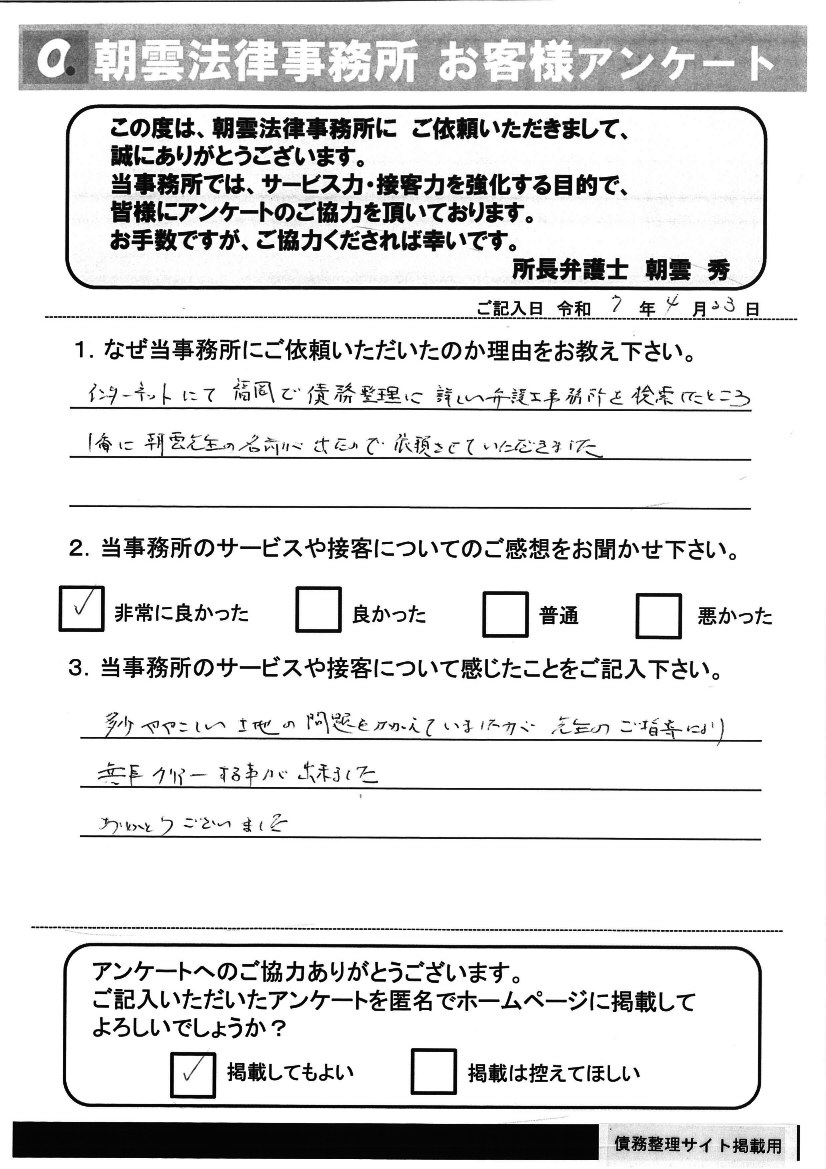 a. 朝雲法律事務所 お客様アンケート
この度は、朝雲法律事務所に ご依頼いただきまして、
誠にありがとうございます。
当事務所では、サービス力・接客力を強化する目的で、
皆様にアンケートのご協力を頂いております。
お手数ですが、ご協力くだされば幸いです。
所長弁護士 朝雲 秀
ご記入日 令和 7 年 4 月 23 日
1. なぜ当事務所にご依頼いただいたのか理由をお教え下さい。
インターネットにて 福岡で債務整理に 詳しい弁護士事務所を検索したところ
1番に朝雲先生の名前が出たので依頼させていただきました
2. 当事務所のサービスや接客についてのご感想をお聞かせ下さい。
✓ 非常に良かった 良かった 普通 悪かった
3. 当事務所のサービスや接客について感じたことをご記入下さい。
多少ややこしい土地の問題をかかえていましたが 先生のご指導により
無事クリアーする事が出来ました
ありがとうございました
アンケートへのご協力ありがとうございます。
ご記入いただいたアンケートを匿名でホームページに掲載して
よろしいでしょうか?
✓ 掲載してもよい 掲載は控えてほしい
債務整理サイト掲載用